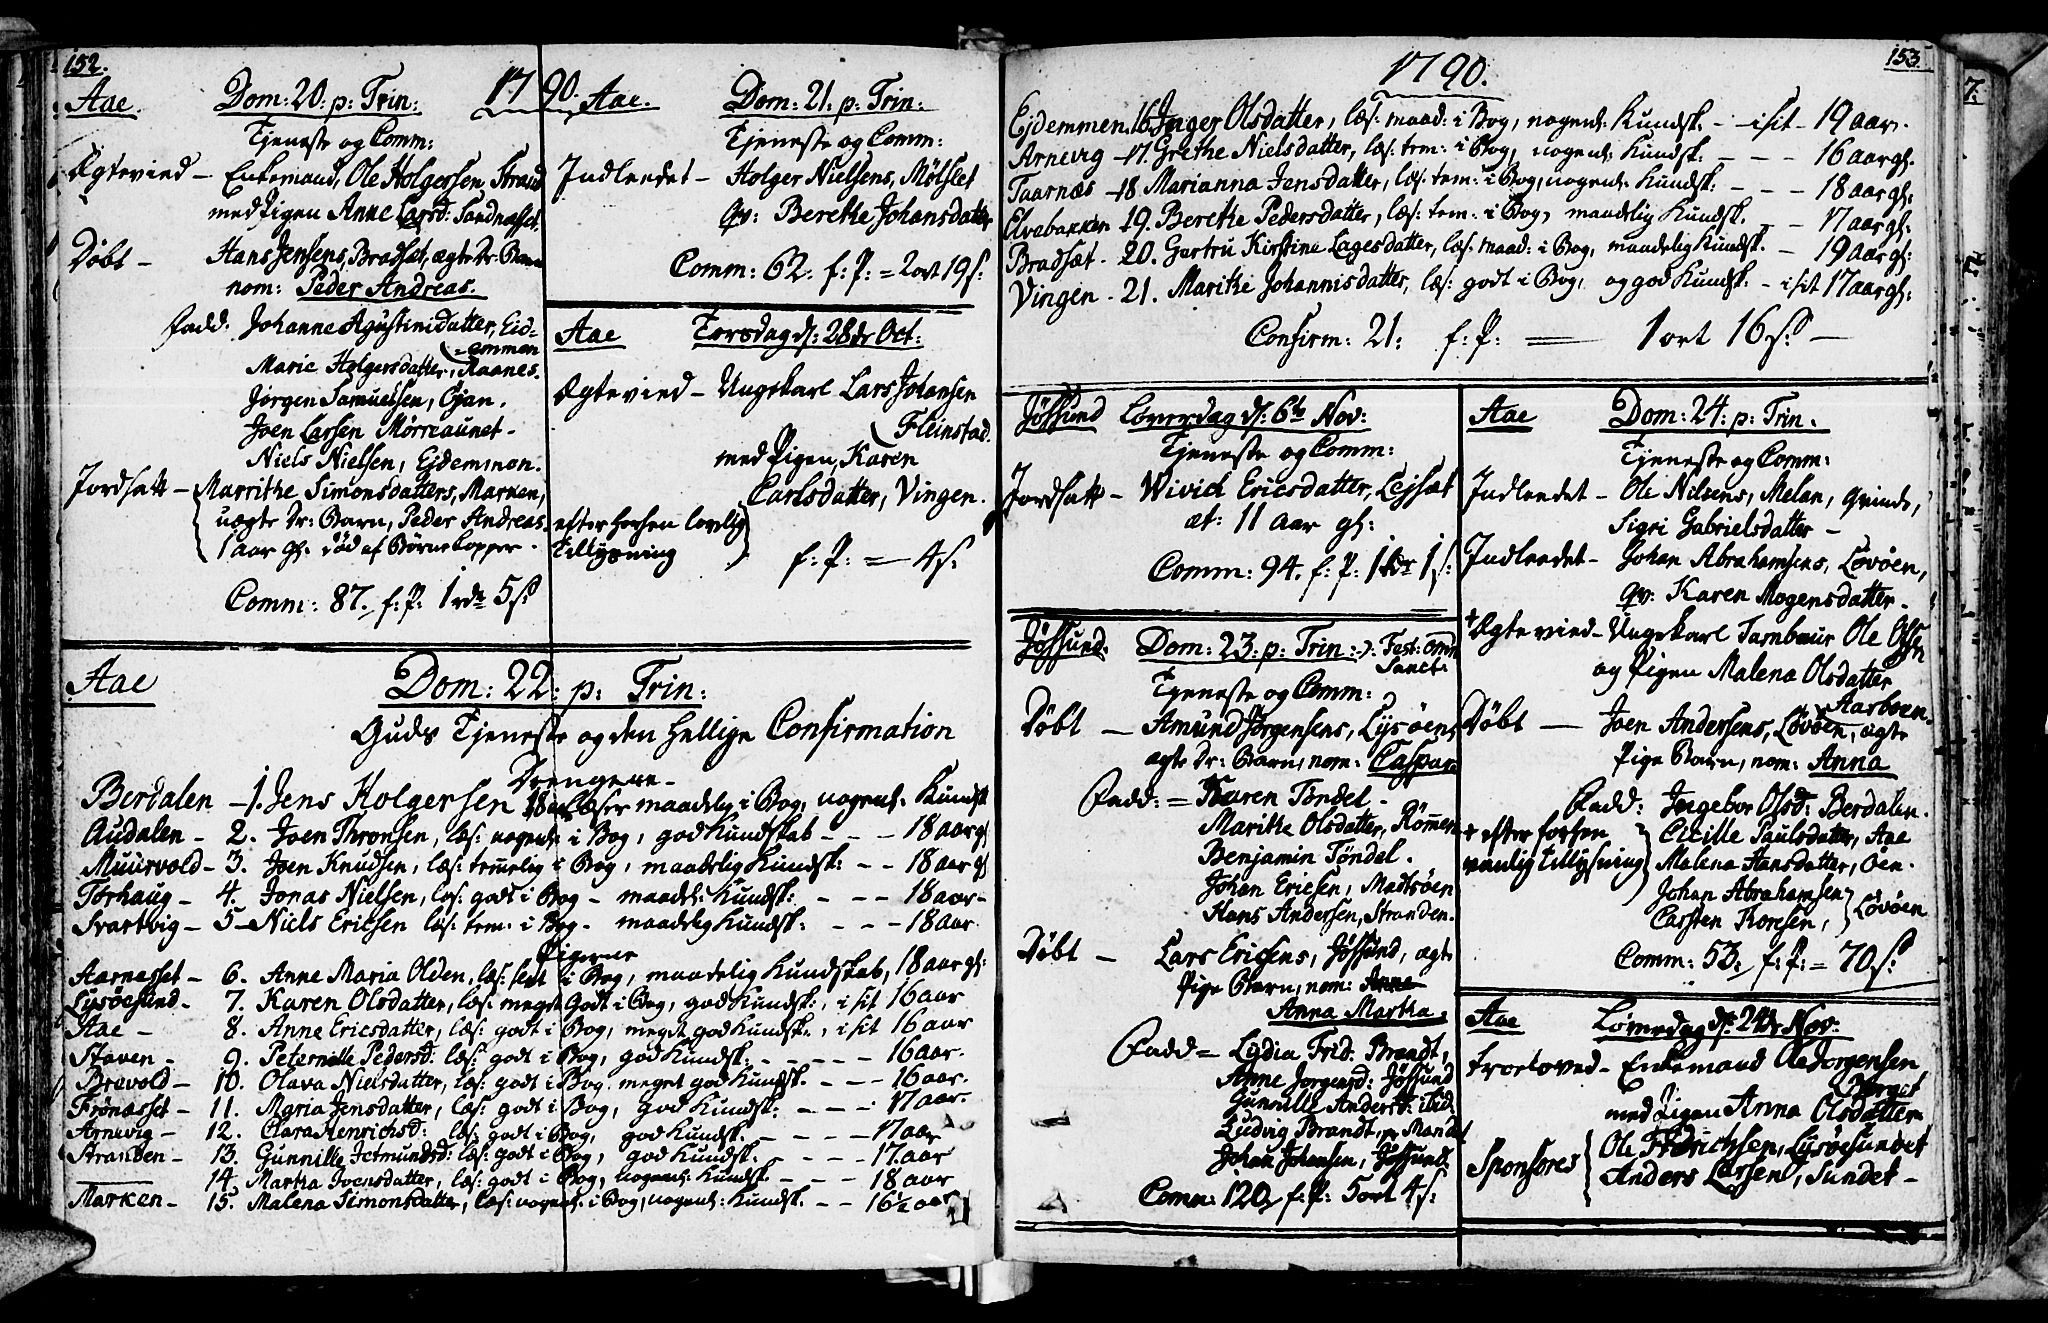 152.
1790.
Aae. Dom: 20. p: Trin:
Tjeneste og Comm:
Ægtevied – Enkemand, Ole Holgersen Strand
med Pigen Anne Larsd: Sandnæsset.
Døbt – Hans Jensens, Bradsæt, ægte Dr. Barn
nom: Peder Andreas.
Fadd: Johanne Agustinidatter, Eid-
=emmen
Marie Holgersdatter, Raanes.
Jørgen Samuelsen, Ejan.
Joen Larsen Mørreaunet –
Niels Nielsen, Ejdemmen.
Jordsatt – Marrithe Simonsdatters, Marken,
uægte Dr: Barn, Peder Andreas
1 aar gl. død af Børnekopper.
Comm: 87. f: P: 1 rdr 5 s:
Aae. Dom: 21. p: Trin:
Tjeneste og Comm:
Indleedet – Holger Nielsens, Mølslet
qv: Berethe Johansdatter
Comm: 62. f: P: = 2 ort 19 s:
Aae Torsdag d: 28de Oct:
Ægteviet – Ungekarl Lars Johansen
Fleinstad.
med Pigen, Karen
Carlsdatter, Vingen.
efter forhen lovlig
Tillysning
f: P: = 4 s.
Aae Dom: 22: p: Trin:
Guds Tjeneste og den hellige Confirmation
Drengene –
Berdalen – 1. Jens Holgersen 18 aar læser maadelig i Bog, nogenl: Kundsk
Audalen – 2. Joen Thronsen, læs: nogenl: i Bog, god Kundskab – – – 18 aar gl
Muurvold – 3. Joen Knudsen, læs: temmelig i Bog, maadelig Kundsk: – – 18 aar gl
Tørhaug – 4. Jonas Nielsen, læs: godt i Bog – maadel: Kundsk: – – – 18 aar –
Svartvig – 5 – Niels Ericsen læs: tem: i Bog – maadelig Kundsk: – – – 18 aar
Pigerne
Aarnesset – 6. Anne Maria Olden, læs: lent i Bog, maadelig Kundskab, 18 aar gl:
Lysøesund – 7. Karen Olsdatter, læs: meget Godt i Bog, god Kundsk:, i sit 16 aar
Aae – 8. Anne Ericsdatter, læs: godt i Bog, meget god Kundsk:, i sit 16 aar
Staven – 9. Peternille Pedersd: læs: godt i Bog, god Kundsk: – – – – – 16 aar.
Brevold – 10. Olava Nielsdatter, læs: godt i Bog. meget god Kundsk. – – – 16 aar.
Frønæsset – 11. Maria Jensdatter, læs: godt i Bog, god Kundsk: – – – 17 aar –
Arnevig – 12. Clara Henrichsd: læs: godt i Bog, god Kundsk. – – – – 17 aar
Stranden – 13. Gunnille Jetmundsd: læs: godt i Bog, god Kundsk. – – – – 17. aar
14. Martha Joensdatter, læs: godt i Bog, nogenl: Kundsk. – – – 18 aar
Marken – 15. Malena Simonsdatter, læs: nogenl. i Bog, nogenl: Kundsk. – – 16½ aar
153.
1790.
Ejdemmen 16 Inger Olsdatter, læs: maad: i Bog, nogenl: Kundsk. – i sit – 19 aar.
Arnevig – 17. Grethe Nielsdatter, læs: tem: i Bog, nogenl: Kundsk: – – – 16 aar gl.
Taarnæs – 18 Marianna Jensdatter, læs: tem: i Bog, nogenl: Kundsk: – – – 18 aar gl:
Elvebakken 19. Berethe Pedersdatter, læs: tem: i Bog, maadelig Kundsk. – – 17 aar gl:
Bradsæt – 20. Gertru Kirstina Lagesdatter, læs: maad: i Bog, maadelig Kundsk. – 19 aar gl:
Vingen – 21. Marithe Johannisdatter, læs: godt i Bog, og god Kundsk. – i sit 17 aar gl:
Confirm: 21: f: P: = 1 ort 16 s: –
Jøssund Løverdag d: 6te Nov:
Tjeneste og Comm:
Jordsatt – Wivich Ericsdatter, Lejsæt
æt: 11 Aar gl:
Comm: 94. f: P: 1 rdr 1 s:
Jøssund. Dom: 23. p: Trin: ɔ: Fest: omn
Sanct:
Tjeneste og Comm:
Døbt – Amund Jørgensens, Lysøens
ægte Dr: Barn, nom: Caspar
Fadd: = Karen Tøndel –
Marithe Olsdatter, Rømmen
Benjamin Tøndel.
Johan Ericsen, Madtsøen
Hans Andersen, Stranden.
Døbt – Lars Ericsens, Jøssund, ægte
Pige Barn, nom: Anne
Anna Martha.
Fadd = Lydia Frid: Brandt,
Anne Jørgensd: Jøssund
Gunnille Andersd: ibid
Ludvig Brandt,
Johan Johansen, Jøssund.
Comm: 120. f: P: 5 ort 4 s:
Aae Dom: 24: p: Trin.
Tjeneste og Comm:
Indleedet – Ole Nilsens, Melan, Qvinde,
Sigri Gabrielsdatter –
Indleedet – Johan Abrahamsens, Løvøen,
qv: Karen Mogensdatter –
+ Ægteviet – Ungekarl Tambour Ole Olsen
og Pigen Malena Olsdatter
Aarboen.
Døbt – Joen Andersens, Løvøen, ægte
Pige Barn, nom: Anna
Fadd: Ingebor Olsd: Berdalen.
+ efter forhen
vanlig tillysning
Cicille Paulsdatter, Aae
Malena Hansdatter, Oen.
Johan Abrahamsen
Carsten Konsen,
Løvøen
Comm: 53. f: P: = 70 s:
Aae Løverdag d: 24de Nov:
troeloved – Enkemand Ole Jørgensen
med Pigen Anna Olsdatter
Sponsores
Ole Fredrichsen, Lysøesundet
Anders Larsen, Sundet –